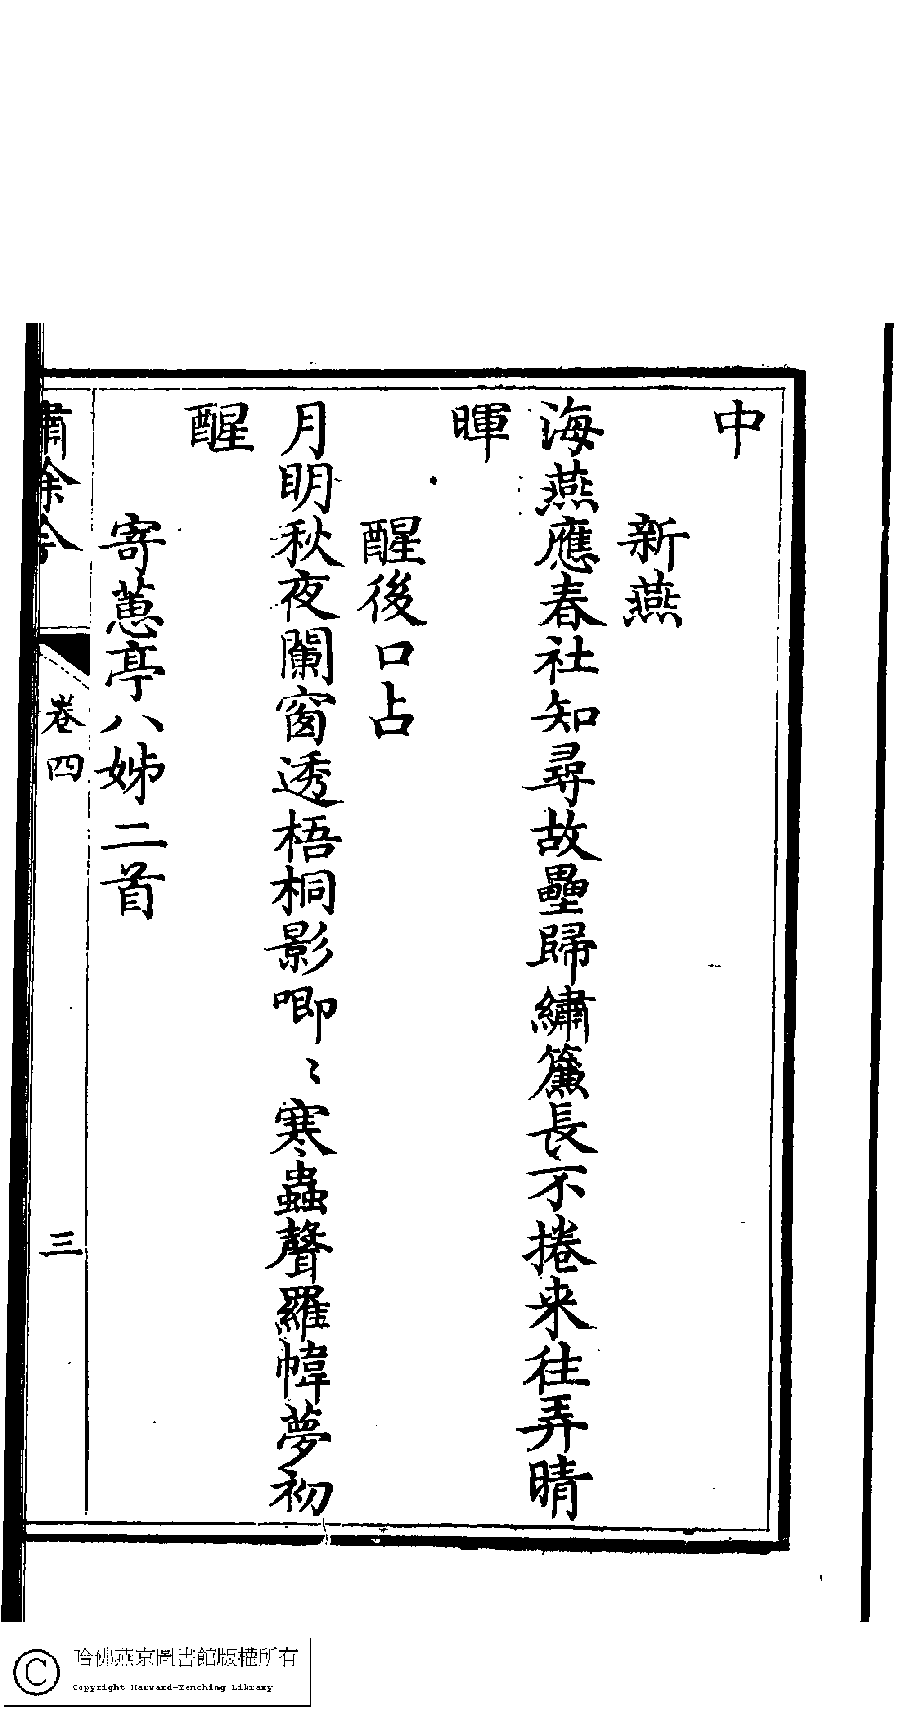 中
新燕
海燕應春社知尋故壘歸繡簾長不捲来往弄晴
暉
醒後口占
月明秋夜闌窗透梧桐影唧〻寒蟲聲羅幃夢初
醒
寄蕙亭八姊二首
卷四
三
哈佛燕京圖書館版權所有
Copyright Harvard-Yenching Library